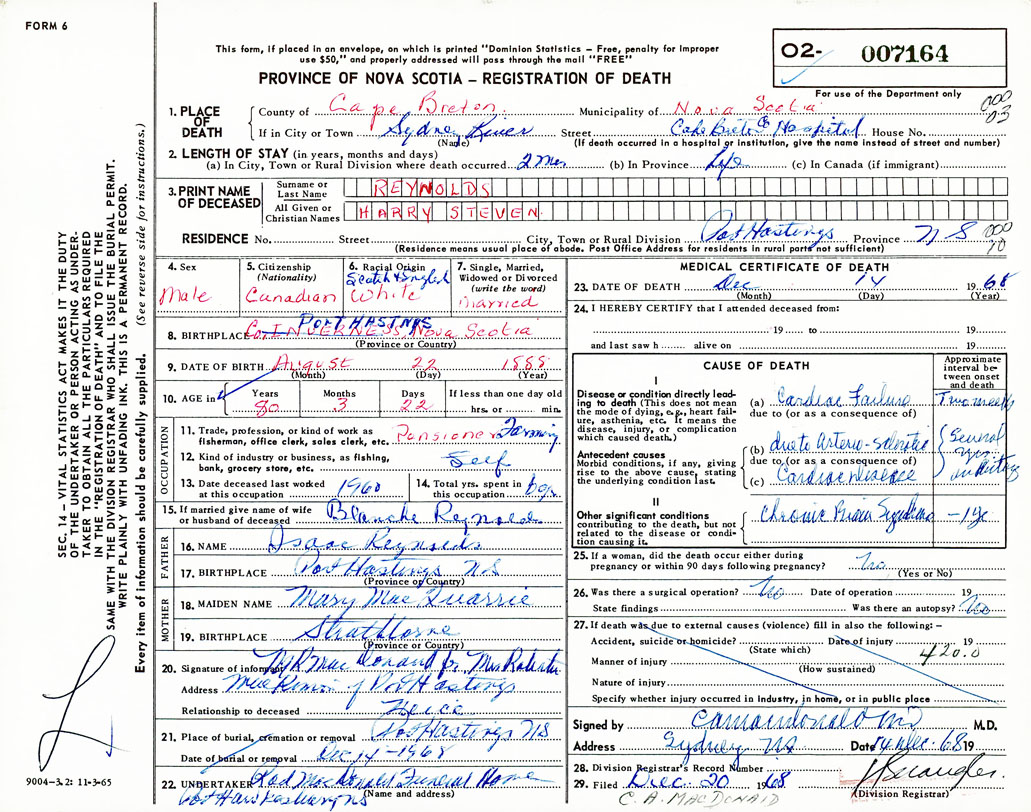 FORM 6
This form, if placed in an envelope, on which is printed "Dominion Statistics – Free, penalty for improper
use $50," and properly addressed will pass through the mail "FREE"
PROVINCE OF NOVA SCOTIA – REGISTRATION OF DEATH
O2- 007164
For use of the Department only
1. PLACE OF DEATH
County of Cape Breton. Municipality of Nova Scotia
000 03
If in City or Town Sydney River Street Cape Breton Co Hospital House No.
(Name) (If death occurred in a hospital or institution, give the name instead of street and number)
2. LENGTH OF STAY (in years, months and days)
(a) In City, Town or Rural Division where death occurred 2 Mos (b) In Province Life (c) In Canada (if immigrant)
3. PRINT NAME OF DECEASED
Surname or Last Name REYNOLDS
All Given or Christian Names HARRY STEVEN
RESIDENCE No. Street City, Town or Rural Division Port Hastings Province N S
000 10
(Residence means usual place of abode. Post Office Address for residents in rural parts not sufficient)
4. Sex
Male
5. Citizenship (Nationality)
Canadian
6. Racial Origin
Scotch & English
White
7. Single, Married, Widowed or Divorced (write the word)
Married
8. BIRTHPLACE Co, INVERNESS, Nova Scotia
PORT HASTINGS
(Province or Country)
9. DATE OF BIRTH August 22 1888
(Month) (Day) (Year)
10. AGE in
Years 80
Months 3
Days 22
If less than one day old
hrs. or min.
OCCUPATION
11. Trade, profession, or kind of work as
fisherman, office clerk, sales clerk, etc. Pensioner Farming
12. Kind of industry or business, as fishing,
bank, grocery store, etc. Self
13. Date deceased last worked
at this occupation 1960
14. Total yrs. spent in
this occupation
15. If married give name of wife
or husband of deceased Blanche Reynolds
FATHER
16. NAME Isaac Reynolds
17. BIRTHPLACE Port Hastings NS
(Province or Country)
MOTHER
18. MAIDEN NAME Mary MacQuarrie
19. BIRTHPLACE Strathlorne
(Province or Country)
20. Signature of informant
Address of Port Hastings
Relationship to deceased Niece
21. Place of burial, cremation or removal Port Hastings NS
Date of burial or removal Dec 14 - 1968
22. UNDERTAKER Rod MacDonald Funeral Home
(Name and address)
MEDICAL CERTIFICATE OF DEATH
23. DATE OF DEATH Dec 14 1968
(Month) (Day) (Year)
24. I HEREBY CERTIFY that I attended deceased from:
19 to 19
and last saw h alive on 19
CAUSE OF DEATH
Approximate interval between onset and death
I
Disease or condition directly leading to death (This does not mean the mode of dying, e.g., heart failure, asthenia, etc. It means the disease, injury, or complication which caused death.)
(a) Cardiac Failure Two weeks
due to (or as a consequence of)
Antecedent causes
Morbid conditions, if any, giving rise to the above cause, stating the underlying condition last.
(b) due to Arterio-sclerotic Several yrs
due to (or as a consequence of)
(c) Cardiac disease
II
Other significant conditions contributing to the death, but not related to the disease or condition causing it.
Chronic Brain Syndrome - 1 yr
25. If a woman, did the death occur either during
pregnancy or within 90 days following pregnancy? No
(Yes or No)
26. Was there a surgical operation? No Date of operation 19
State findings Was there an autopsy? No
27. If death was due to external causes (violence) fill in also the following: –
Accident, suicide or homicide? Date of injury 19
(State which)
420.0
Manner of injury
(How sustained)
Nature of injury
Specify whether injury occurred in industry, in home, or in public place
Signed by M.D.
Address Sydney NS Date 14 Dec. 68 19
28. Division Registrar's Record Number
29. Filed Dec. 20 1968
(Division Registrar)
C. A. MACDONALD
SEC. 14 – VITAL STATISTICS ACT MAKES IT THE DUTY
OF THE UNDERTAKER OR PERSON ACTING AS UNDER-
TAKER TO OBTAIN ALL THE PARTICULARS REQUIRED
IN THE "REGISTRATION OF DEATH" AND TO FILE THE
SAME WITH THE DIVISION REGISTRAR WHO SHALL ISSUE THE BURIAL PERMIT.
WRITE PLAINLY WITH UNFADING INK. THIS IS A PERMANENT RECORD.
Every item of information should be carefully supplied. (See reverse side for instructions.)
9004-3.2: 11-3-65